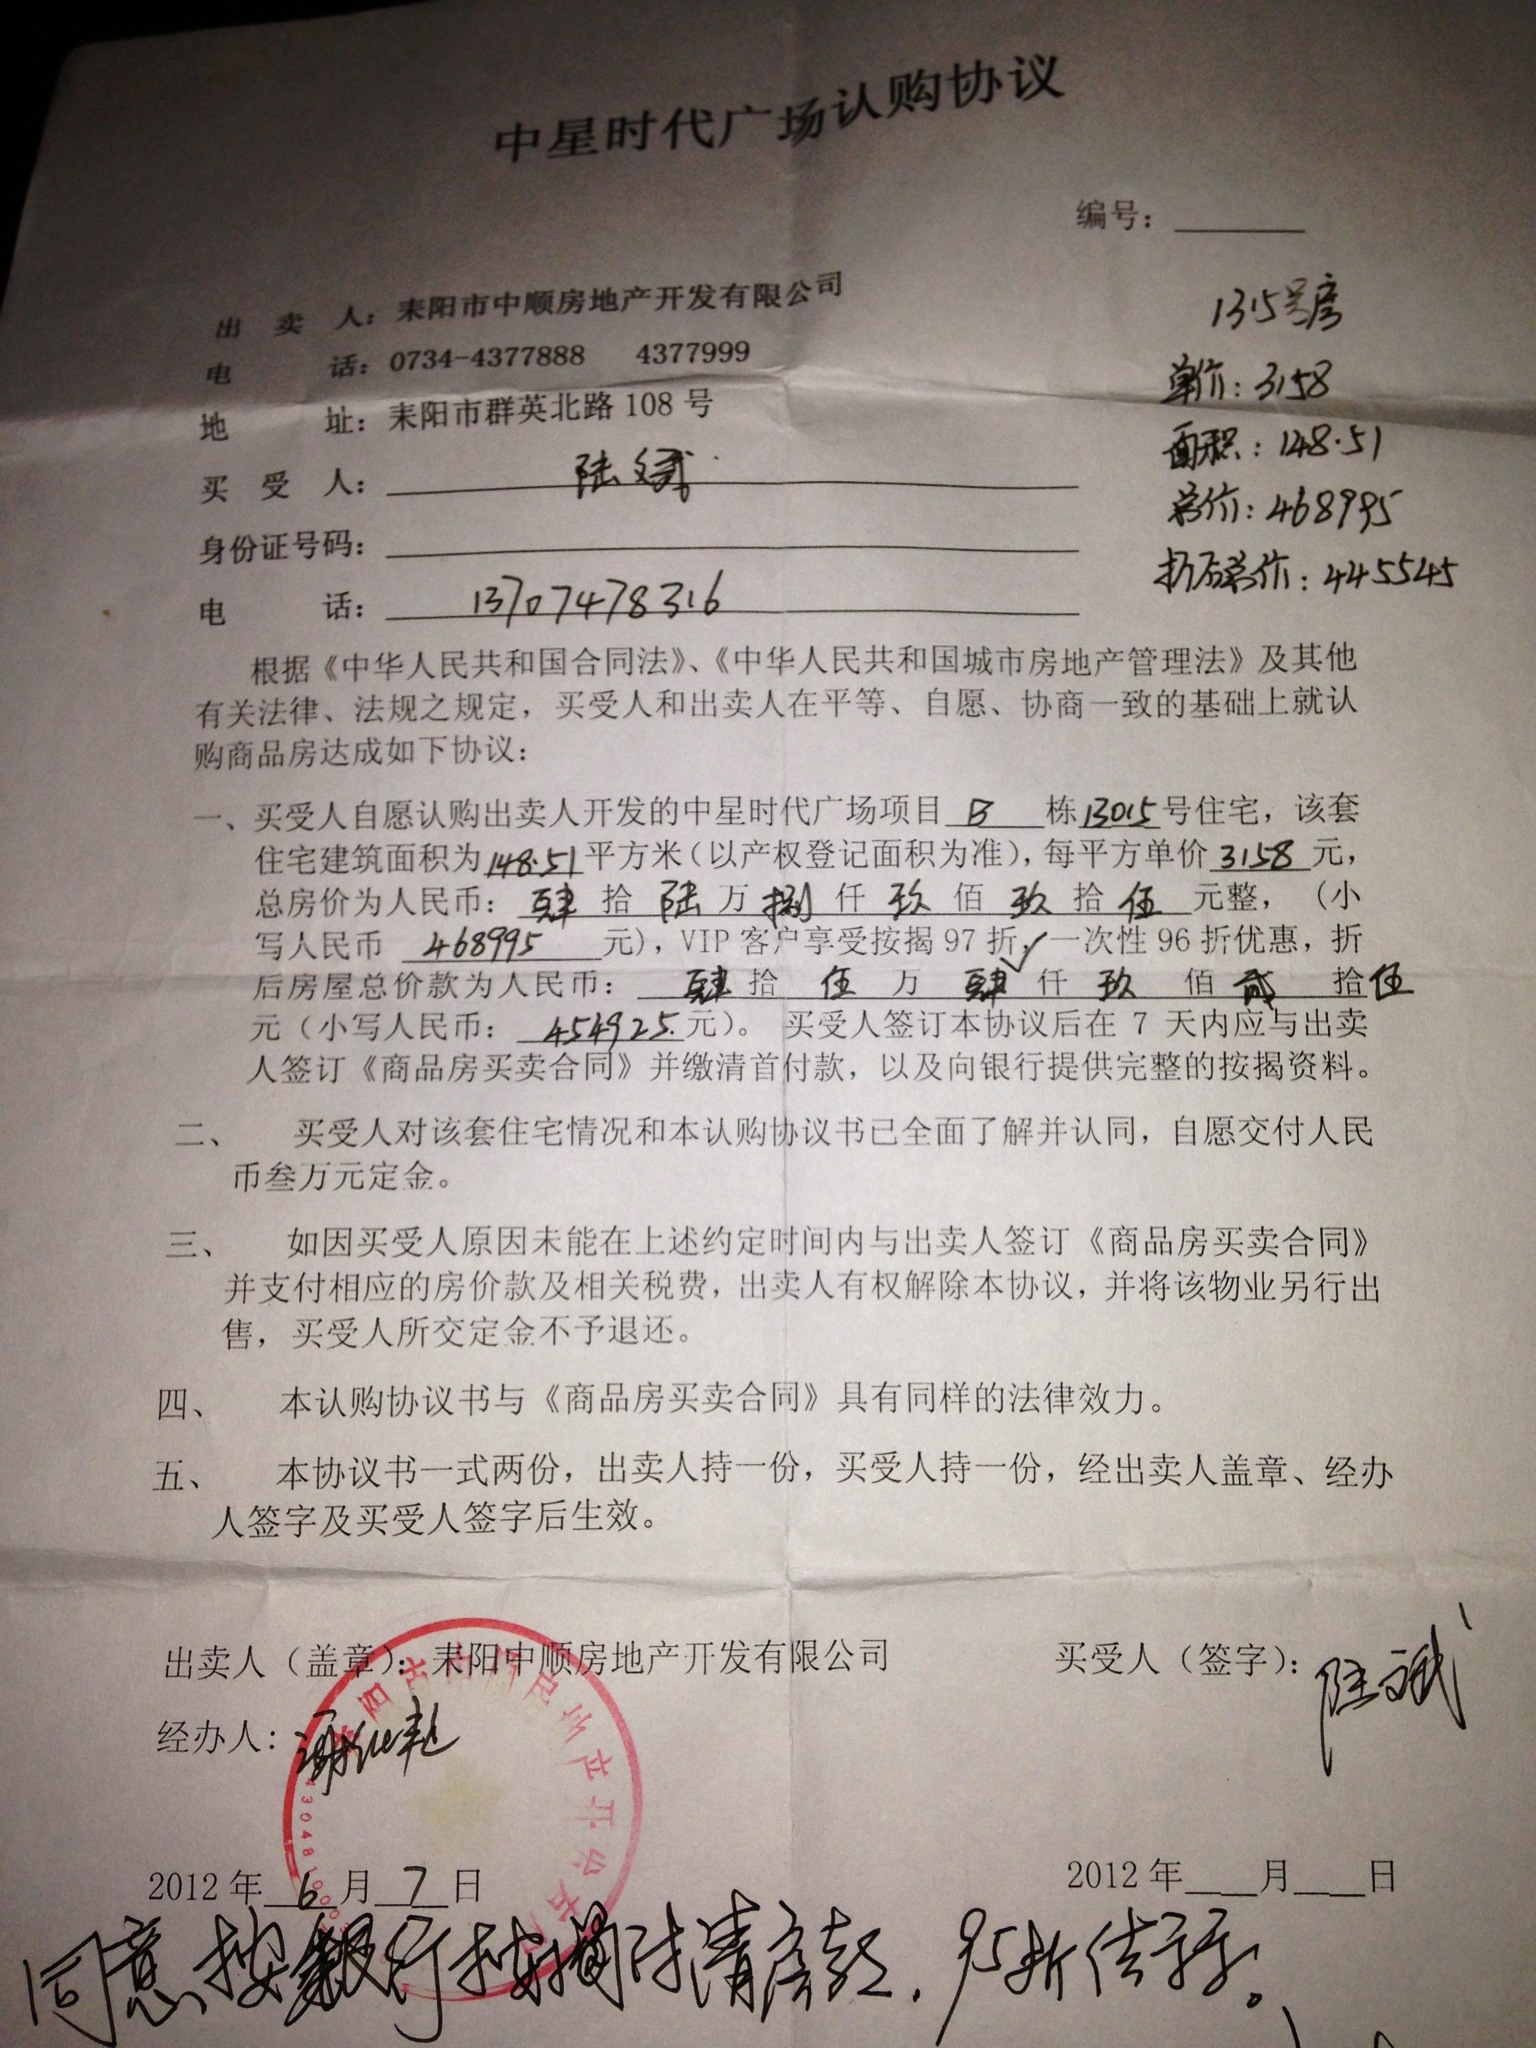 中星时代广场认购协议
编号：
出卖人：耒阳市中顺房地产开发有限公司
电话：0734-4377888 4377999
地址：耒阳市群英北路 108 号
买受人：陆文斌
身份证号码：
电话：13707478316
1315号房
单价：3158
面积：148.51
总价：468995
折后总价：445545
根据《中华人民共和国合同法》、《中华人民共和国城市房地产管理法》及其他
有关法律、法规之规定，买受人和出卖人在平等、自愿、协商一致的基础上就认
购商品房达成如下协议：
一、买受人自愿认购出卖人开发的中星时代广场项目 B 栋 13015 号住宅，该套
住宅建筑面积为 148.51 平方米（以产权登记面积为准），每平方单价 3158 元，
总房价为人民币：肆 拾 陆 万 捌 仟 玖 佰 玖 拾 伍 元整，（小
写人民币 468995 元），VIP 客户享受按揭 97 折✓一次性 96 折优惠，折
后房屋总价款为人民币：肆 拾 伍 万 肆 仟 玖 佰 贰 拾 伍
元（小写人民币：454925.元）。买受人签订本协议后在 7 天内应与出卖
人签订《商品房买卖合同》并缴清首付款，以及向银行提供完整的按揭资料。
二、 买受人对该套住宅情况和本认购协议书已全面了解并认同，自愿交付人民
币叁万元定金。
三、 如因买受人原因未能在上述约定时间内与出卖人签订《商品房买卖合同》
并支付相应的房价款及相关税费，出卖人有权解除本协议，并将该物业另行出
售，买受人所交定金不予退还。
四、 本认购协议书与《商品房买卖合同》具有同样的法律效力。
五、 本协议书一式两份，出卖人持一份，买受人持一份，经出卖人盖章、经办
人签字及买受人签字后生效。
出卖人（盖章）：耒阳中顺房地产开发有限公司
买受人（签字）：陆文斌
经办人：
2012 年 6 月 7 日
2012 年 月 日
同意按银行按揭付清房款，95折